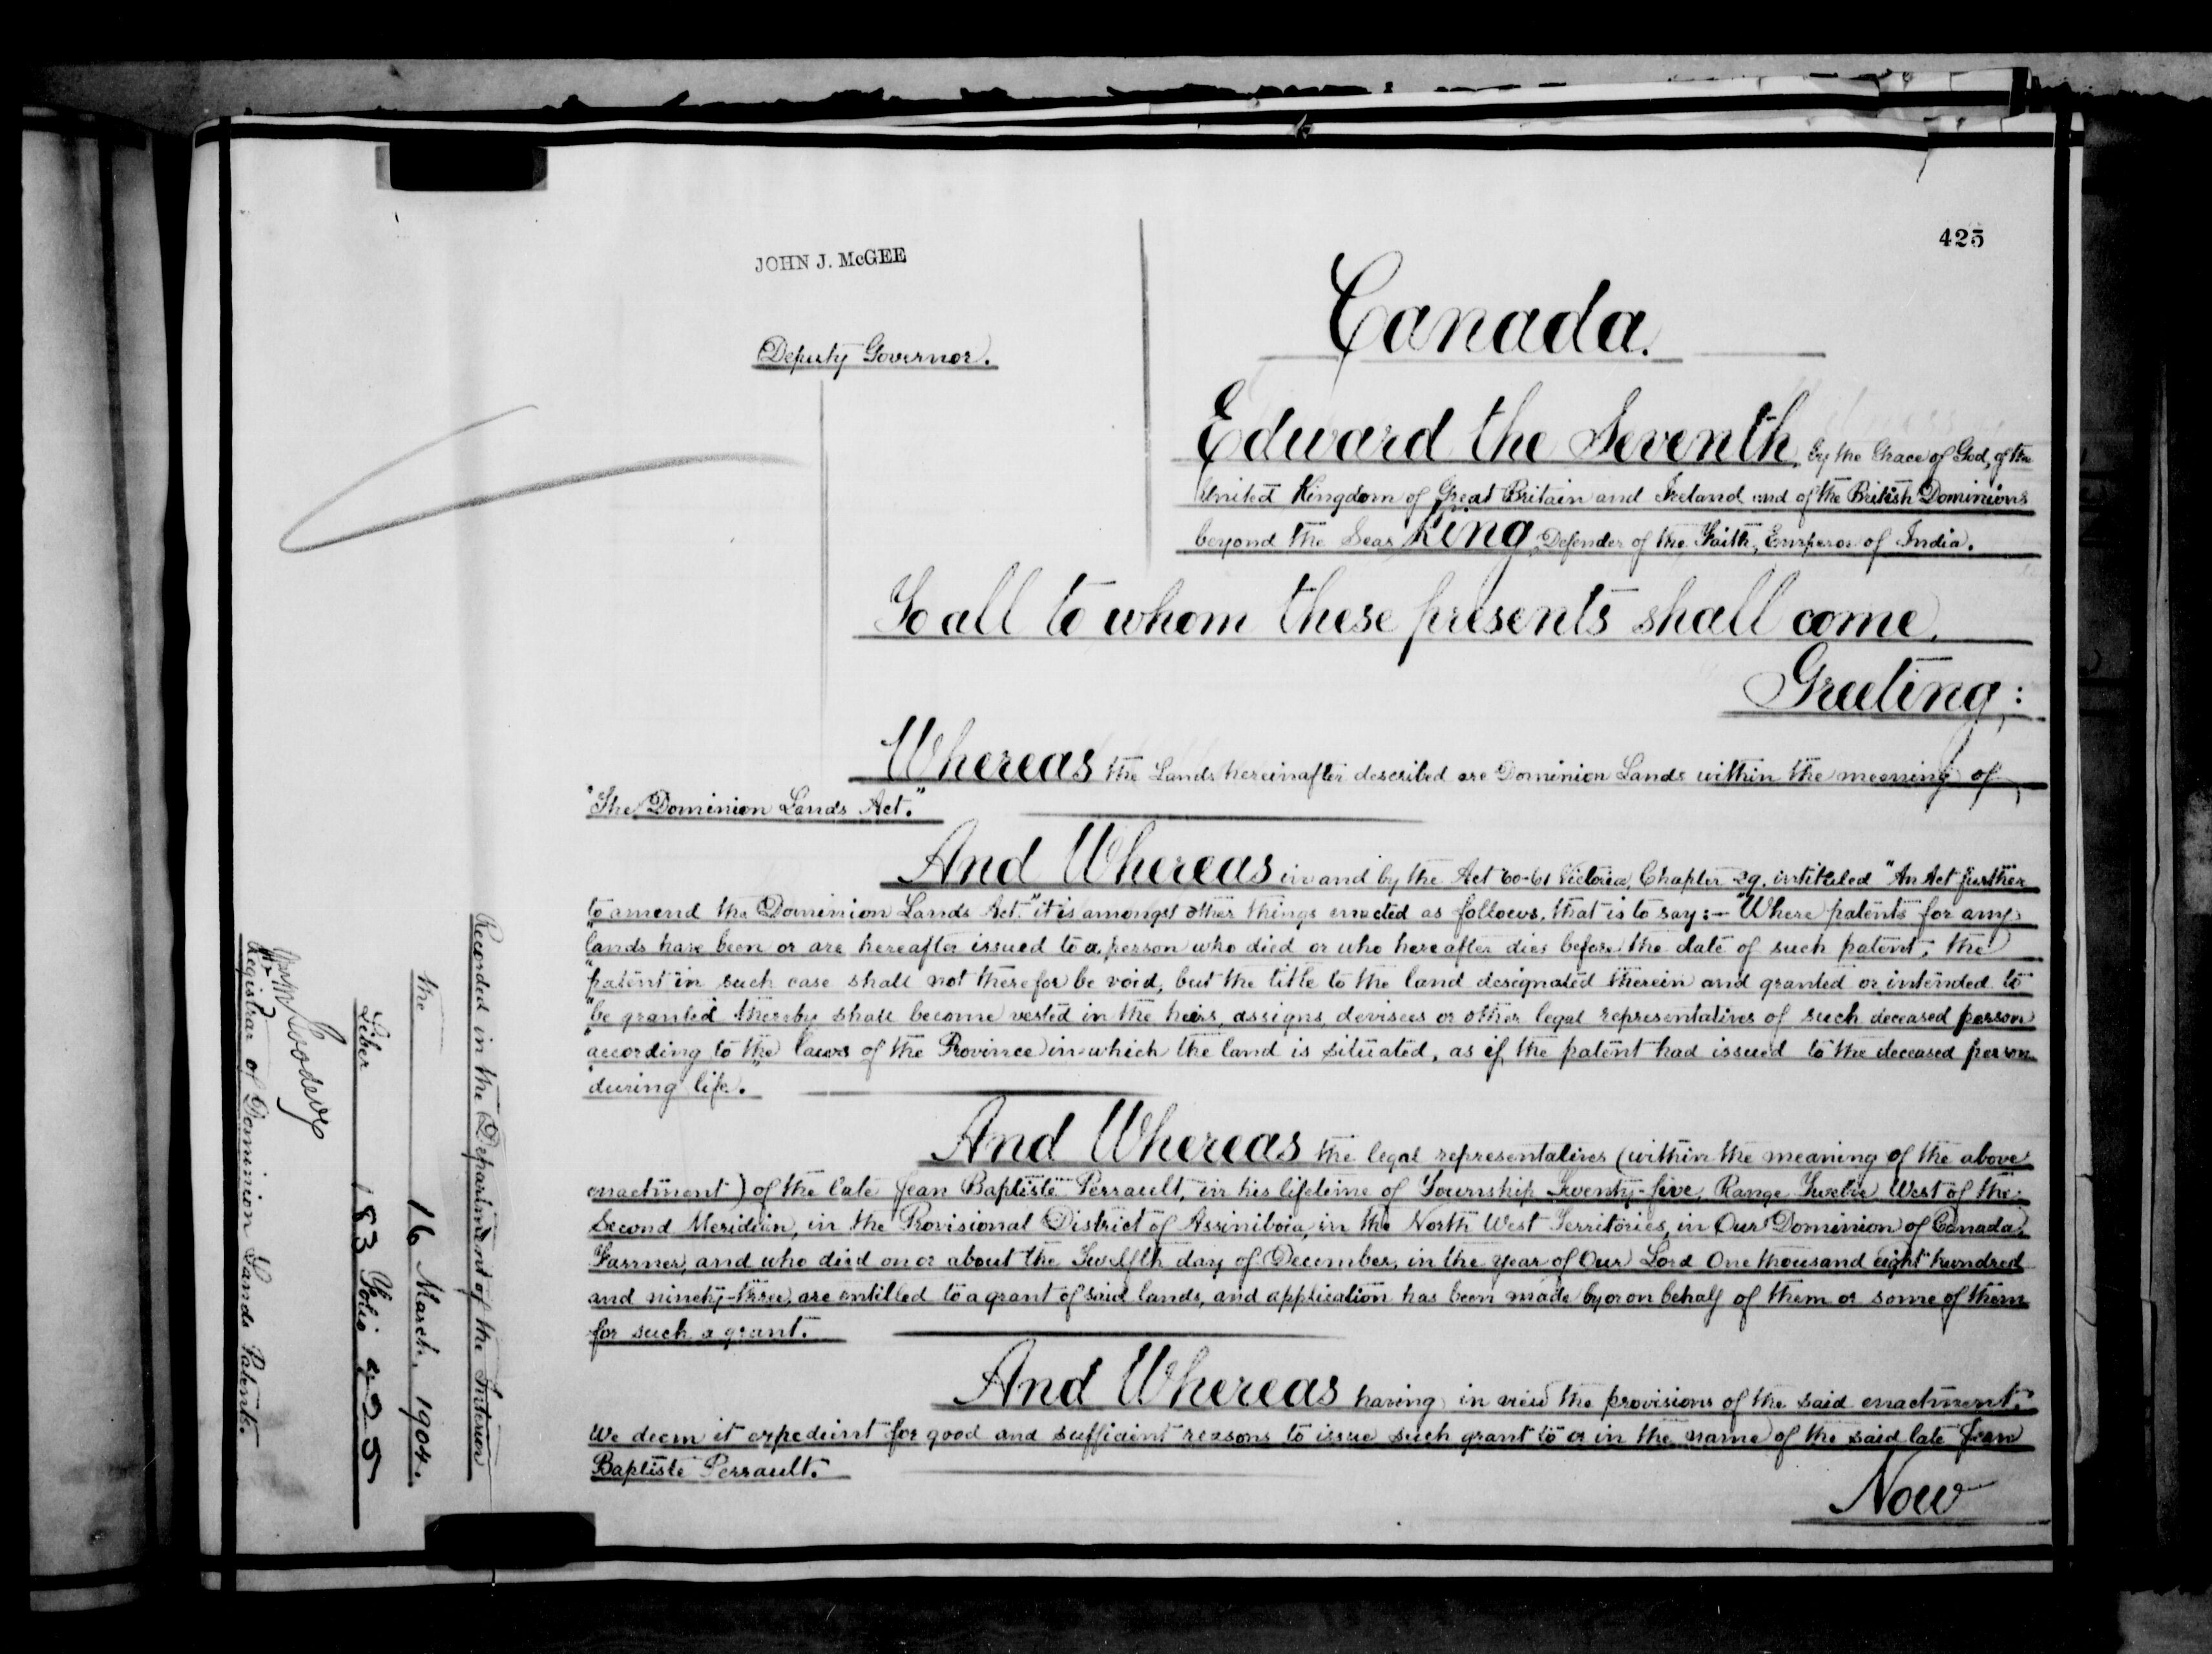 425
JOHN J. McGEE
Deputy Governor.
Canada.
Edward the Seventh, by the Grace of God, of the
United Kingdom of Great Britain and Ireland and of the British Dominions
beyond the Seas King, Defender of the Faith, Emperor of India.
To all to whom these presents shall come,
Greeting:
Whereas the Lands hereinafter described are Dominion Lands within the meaning of
"The Dominion Lands Act."
And Whereas in and by the Act 60-61 Victoria, Chapter 29, intituled "An Act further
to amend the Dominion Lands Act." it is amongst other things enacted as follows, that is to say:- "Where patents for any
"lands have been or are hereafter issued to a person who died or who hereafter dies before the date of such patent, the
"patent in such case shall not therefor be void, but the title to the land designated therein and granted or intended to
"be granted thereby shall become vested in the heirs, assigns, devisees or other legal representatives of such deceased person
"according to the laws of the Province in which the land is situated, as if the patent had issued to the deceased person
"during life."
And Whereas the legal representatives (within the meaning of the above
enactment) of the late Jean Baptiste Perrault, in his lifetime of Township Twenty-five, Range Twelve West of the
Second Meridian, in the Provisional District of Assiniboia, in the North West Territories, in Our Dominion of Canada,
Farmer, and who died on or about the Twelfth day of December, in the year of Our Lord One thousand eight hundred
and ninety-three, are entitled to a grant of said lands, and application has been made by or on behalf of them or some of them
for such a grant.
And Whereas having in view the provisions of the said enactment,
We deem it expedient for good and sufficient reasons to issue such grant to or in the name of the said late Jean
Baptiste Perrault.
Now
Recorded in the Department of the Interior
the 16 March, 1904.
Liber 183 Folio 425
Registrar of Dominion Lands Patents.